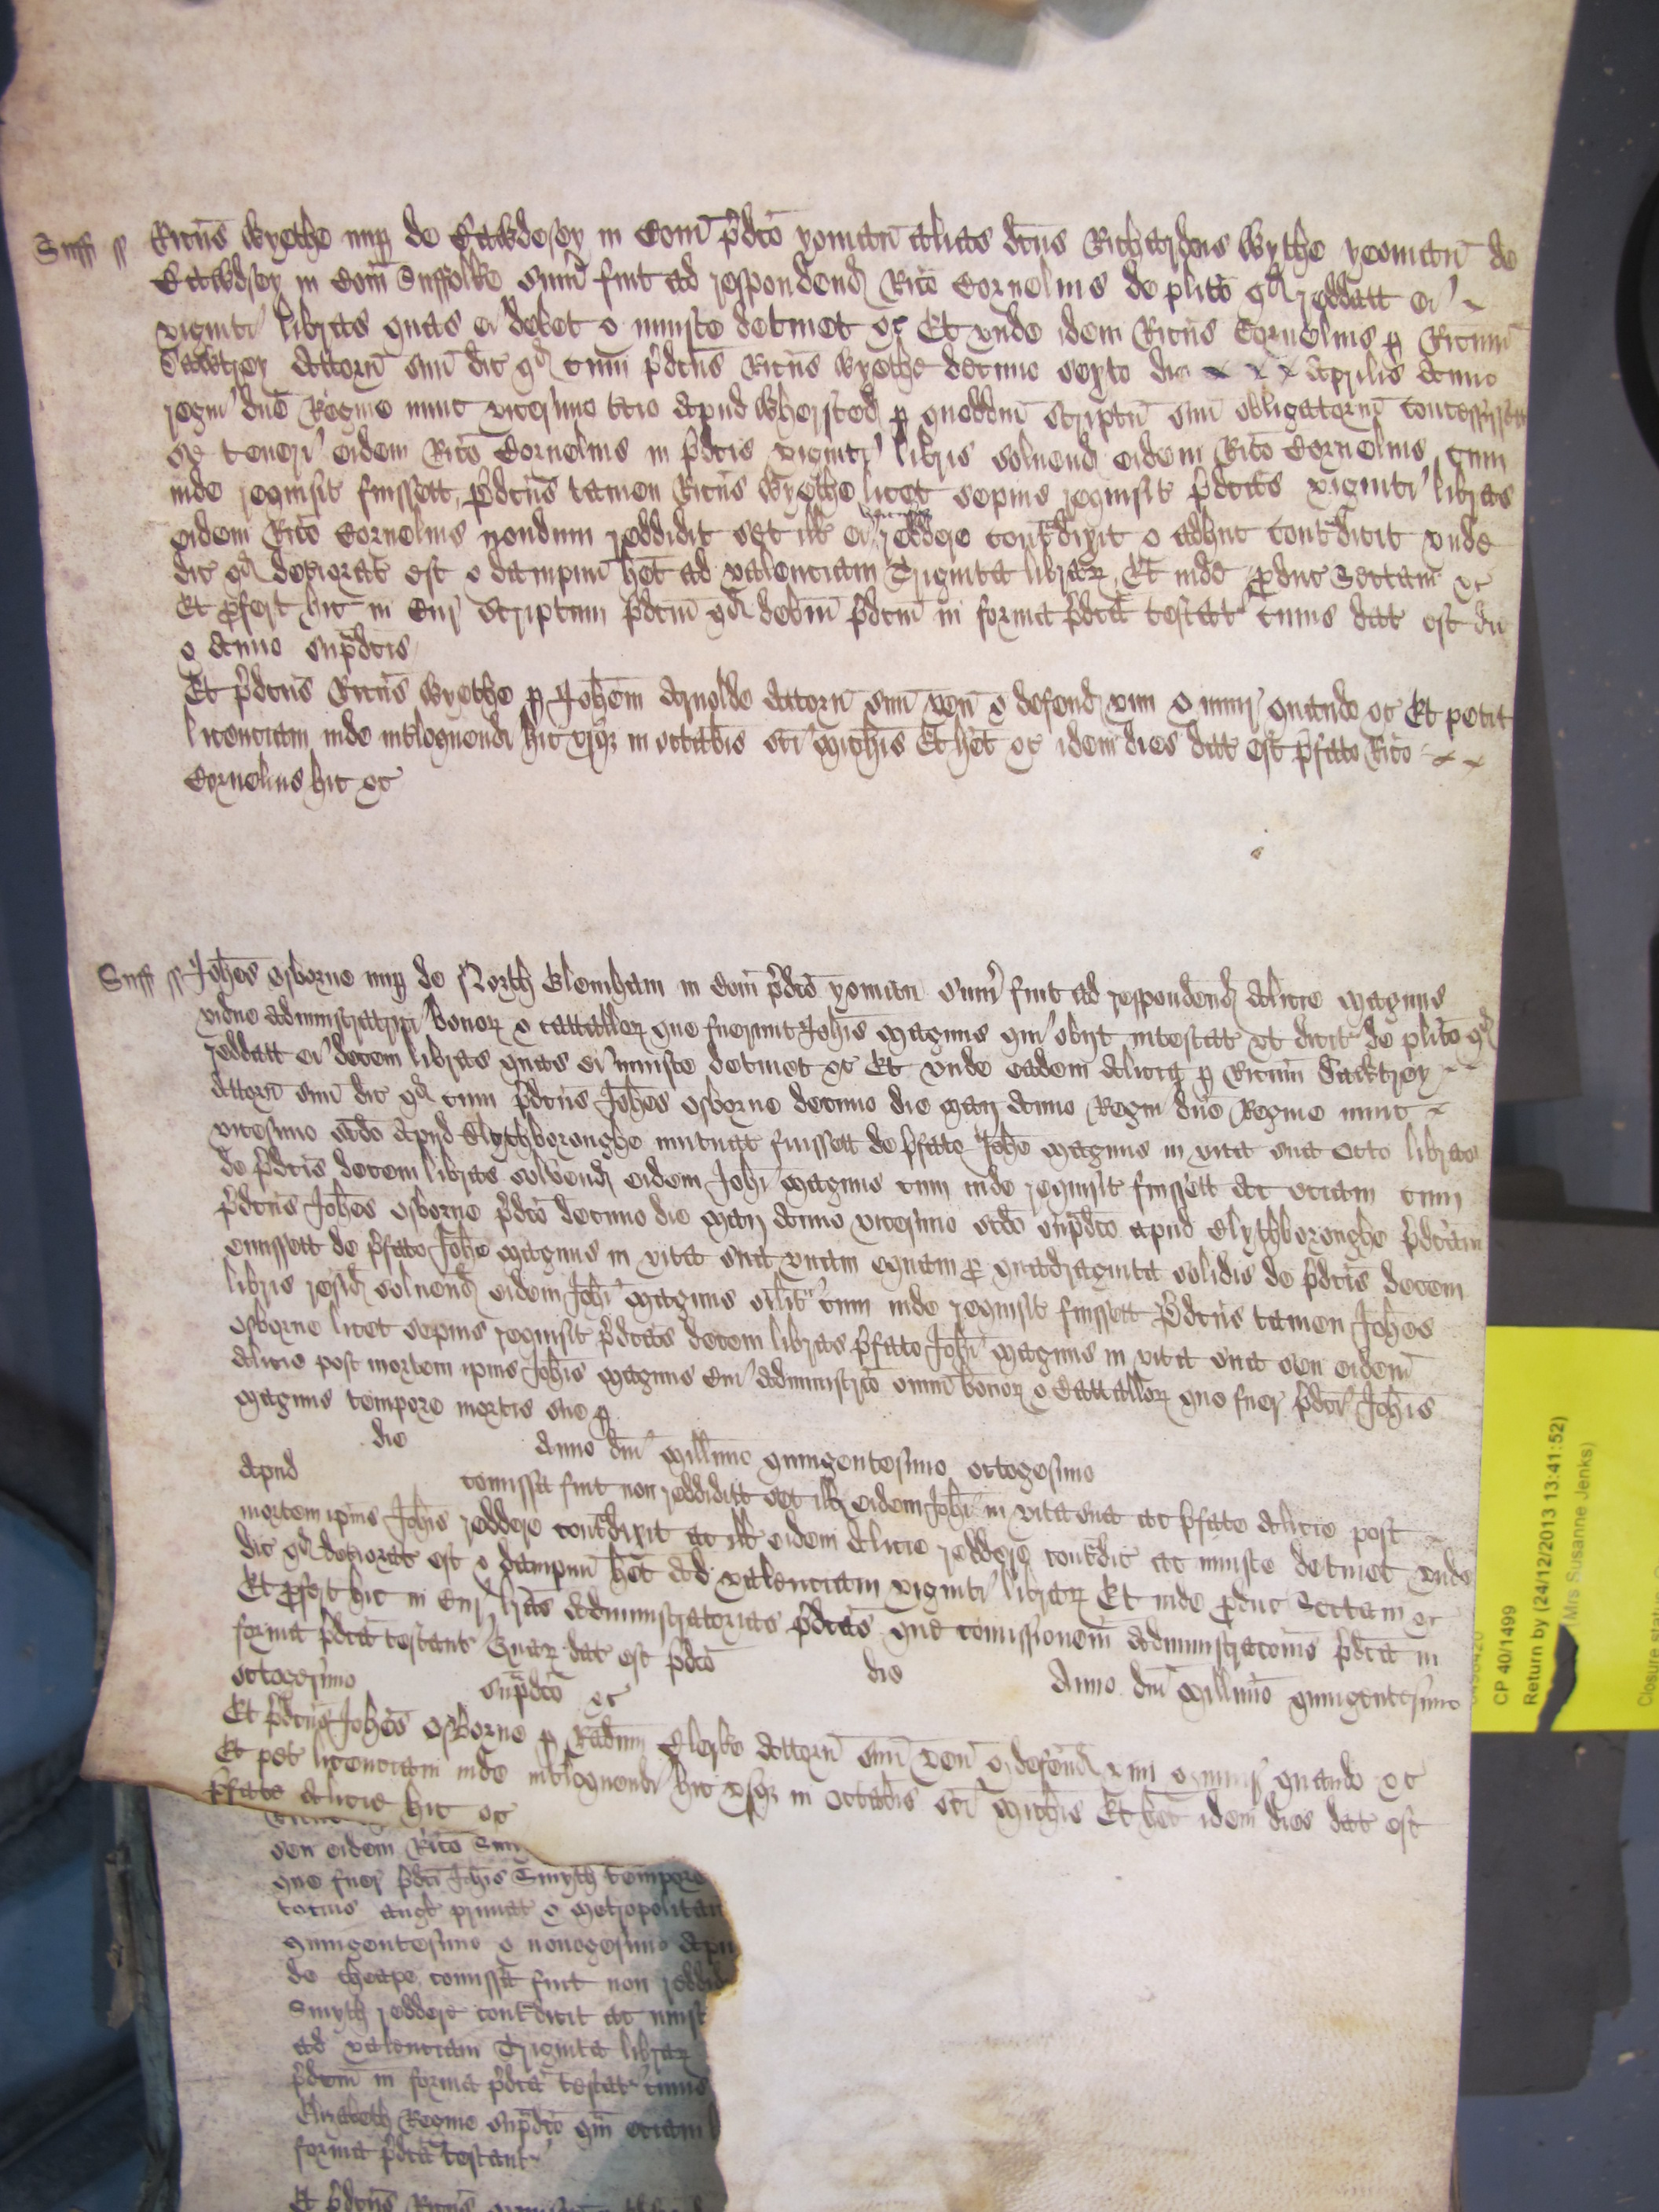 Suff ss Ricūs Wyethe nup de Bawdesey in Com p̄dcō yoman alias dcūs Richardus Wythe yeoman de
Bawdsey in Com Suffolke sum fuit ad respondend Ricō Cornelius de plitō qd reddatt ei
viginti libras quas ei debet & iniuste detinet &c Et unde idem Ricūs Cornelius p Ricum
attorn suū dic qd cum p̄dcūs Ricūs Wyethe decimo sexto die Aprilis anno
regni dnē Regine nunc vicesimo tcio apud Whersted p quoddam scriptū suū obligatoriū concessissett
se teneri eidem Ricō Cornelius in p̄dcis viginti libris solvend eidem Ricō Cornelius cum
inde requisit fuissett p̄dcūs tamen Ricūs Wyethe licet sepius requisit p̄dcās viginti libras
eidem Ricō Cornelius nondum reddidit set ill ei reddere contradixit & adhuc contradicit unde
dic qd deteriorat est & dampnū hēt ad valenciam Triginta librar Et inde produc Sectam &c
Et profert hic in Cur scriptum p̄dcm qd debm p̄dcm in forma p̄dca testatr cuius dat est die
& anno sup̄dcis
Et p̄dcūs Ricūs Wyethe p Johem Arnolde attorn suū ven & defend vim & iniur quando &c Et petit
licenciam inde intloquendi hic usqz in octabis sci Michis Et hēt &c idem dies dat est p̄fato Ricō
Cornelius hic &c
Suff ss Johes Osborne nup de North Glemham in Com p̄dcō yoman sum fuit ad respondend Alicie Magnus
vidue administratrici bonor & cattallor que fuerunt Johis Magnus qui obijt intestat ut dicit de plitō qd
reddatt ei decem libras quas ei iniuste detinet &c Et unde eadem Alicia p Ricum
attorn suū dic qd cum p̄dcūs Johes Osborne decimo die Maij anno Regni dnē Regine nunc
vicesimo scdo apud Blythboroughe mutuat fuissett de p̄fato Johe Magnus in vita sua octo libras
de p̄dcis decem libras solvend eidem Johi Magnus cum inde requisit fuissett ac eciam cum
p̄dcūs Johes Osborne p̄dcō decimo die Maij anno vicesimo scdo sup̄dcō apud Blythboroughe p̄dcam
emissett de p̄fato Johe Magnus in vita sua unam equam pro quadraginta solidis de p̄dcis decem
libris resid solvend eidem Johi Magnus silit cum inde requisit fuissett p̄dcūs tamen Johes
Osborne licet sepius requisit p̄dcās decem libras p̄fato Johi Magnus in vita sua seu eidem
Alicie post mortem ipius Johis Magnus cui administracō omniū bonor & Cattallor que fuer p̄dci Johis
Magnus tempore mortis sue p
die Anno dni Millimo quingentesimo octogesimo
apud comissa fuit non reddiditt set ill eidem Johi in vita sua ac p̄fate Alicie post
mortem ipius Johis reddere contradixit ac ill eidem Alicie reddere contradic ac iniuste detinet unde
dic qd deteriorat est & dampnū hēt ad valenciam viginti librar Et inde produc Sectam &c
Et profert hic in Cur lrās administratorias p̄dcās que comissionem administracōnis p̄dca in
forma p̄dca testant Quar dat est p̄dcō die Anno dni Millimo quingentesimo
octogesimo sup̄dcō &c
Et p̄dcūs Johes Osborne p Radum Clerke attorn suū ven & defend vim & iniur quando &c
Et pet licenciam inde intloquendi hic usqz in Octabis sci Michis Et hēt idem dies dat est
p̄fate Alicie hic &c
seu eidem Ricō
que fuer p̄dci Johis Smyth tempore
tocius Angl primat & Metropolitan
quingentesimo & nonogesimo apu
de Cheape comissa fuit non reddid
Smyth reddere contradicit ac iniust
ad valenciam Triginta librar
p̄dcm in forma p̄dca testat cuius
Elizabeth Regine sup̄dcō eciam
forma p̄dca testant
Et p̄dcūs Ricūs
CP 40/1499
Return by (24/12/2013 13:41:52)
(Mrs Susanne Jenks)